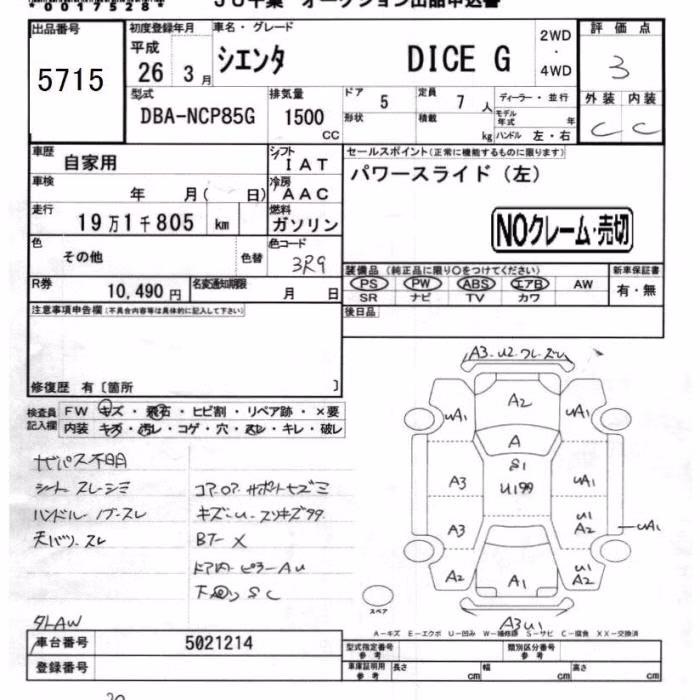 00175284
JU千葉 オークション出品申込書
出品番号 5715
初度登録年月 平成 26 3月
車名・グレード シエンタ DICE G
2WD ・ 4WD
評価点 3
外装 内装
C C
型式 DBA-NCP85G
排気量 1500 CC
ドア 5
定員 7 人
ディーラー・並行
形状
積載 kg
モデル年式 年
ハンドル 左・右
車歴 自家用
シフト IAT
セールスポイント(正常に機能するものに限ります)
パワースライド(左)
車検 年 月( 日)
冷房 AAC
走行 19万1千805 km
燃料 ガソリン
NOクレーム・売切
色 その他 色替
色コード 3R9
装備品(純正品に限り○をつけてください)
新車保証書
PS PW ABS エアB AW
有・無
SR ナビ TV カワ
R券 10,490円
名変通知期限 月 日
後日品
注意事項申告欄(不具合内容等は具体的に記入して下さい)
修復歴 有〔箇所 〕
検査員記入欄
FW キズ・飛石・ヒビ割・リペア跡・×要
内装 キズ・汚レ・コゲ・穴・スレ・キレ・破レ
シート スレ・シミ
ハンドル・ノブ・スレ
キズ・U・スリキズ99
B7- X
ドア内・ピラーAU
下回り SC
A3・U2・ワレ・ズレ
A2
UA1
UA1
A
S1
U199
A3
UA1
A3
U1
A2
UA1
A2
A1
U1
A2
スペア
A3U1
A-キズ E-エクボ U-凹み W-補修跡 S-サビ C-腐食 XX-交換済
車台番号 5021214
登録番号
型式指定番号 参考
類別区分番号 参考
車庫証明用 参考
長さ cm
幅 cm
高さ cm